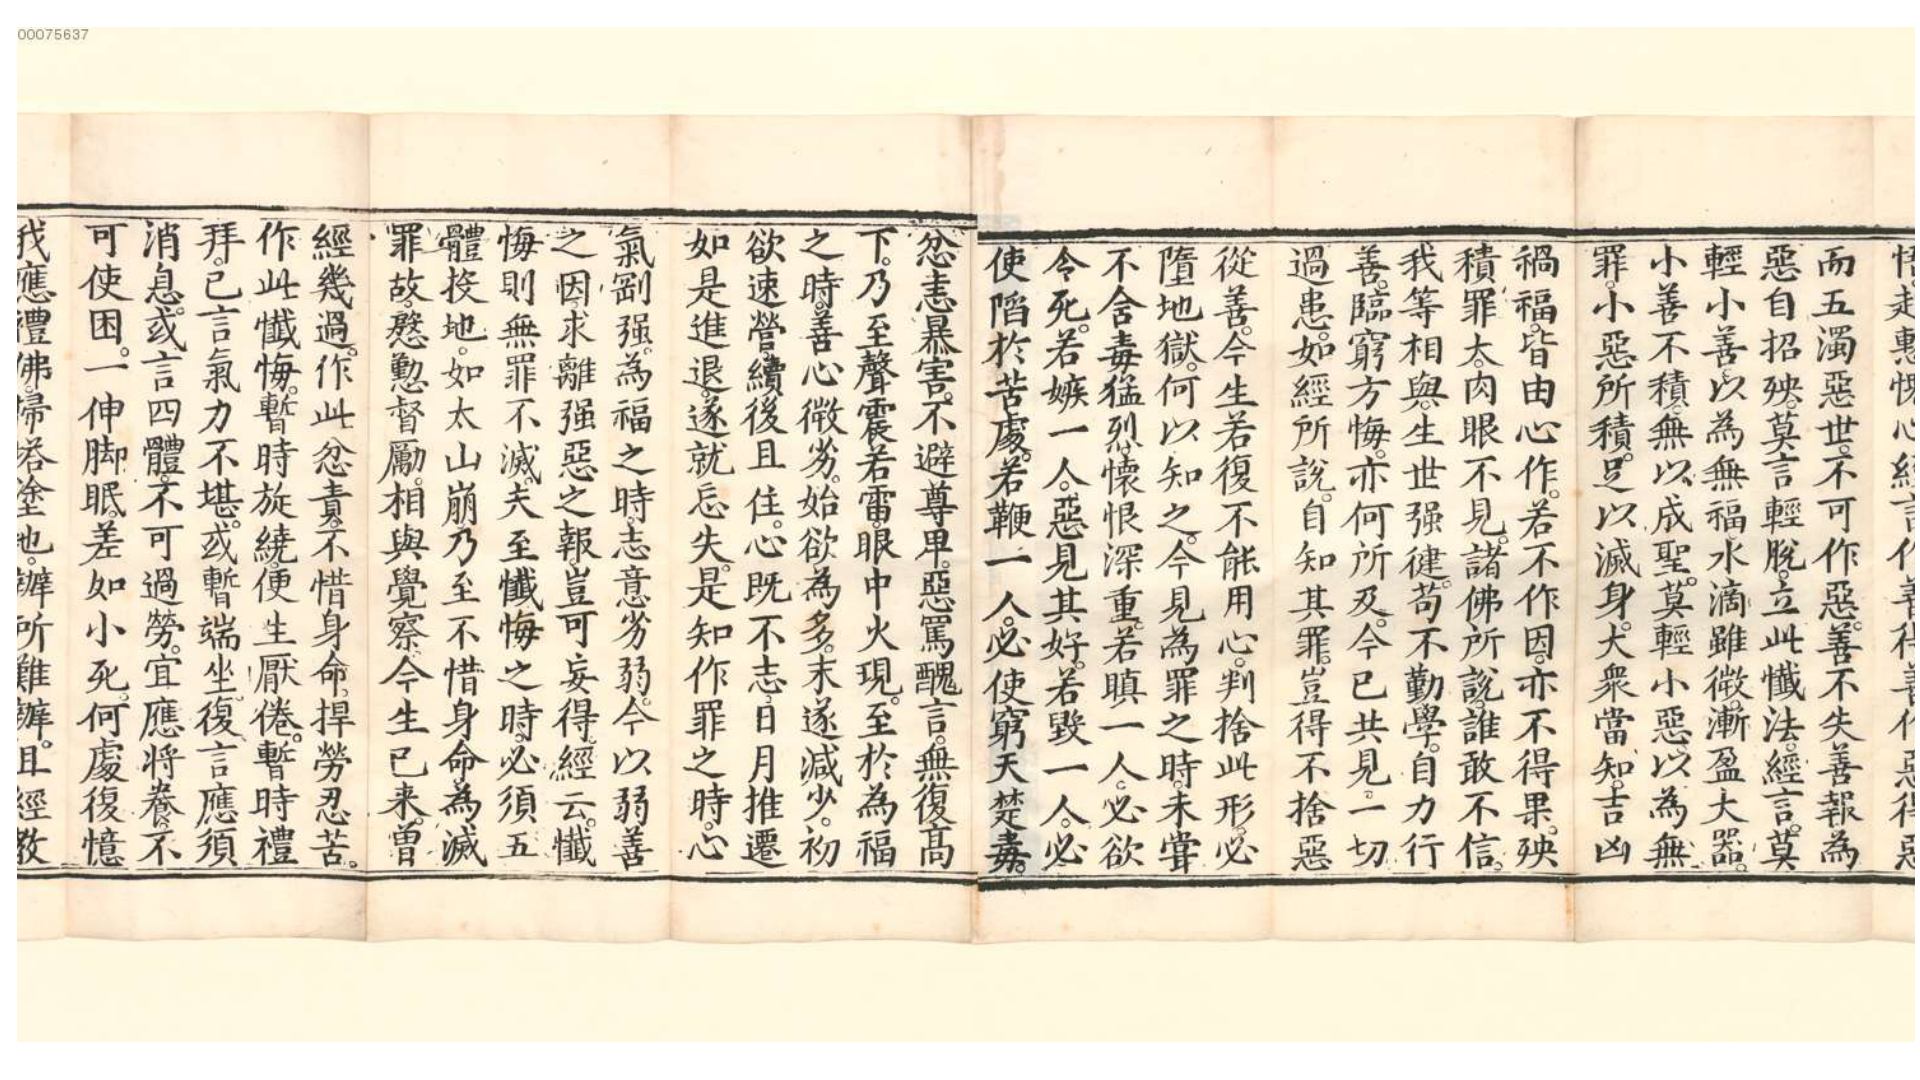 00075637
悟起慙愧心經言作善得善作惡得惡
而五濁惡世。不可作惡。善不失善報。為
惡自招殃。莫言輕脫。立此懺法。經言。莫
輕小善以為無福。水滴雖微。漸盈大器。
小善不積。無以成聖。莫輕小惡以為無
罪。小惡所積。足以滅身。大眾當知。吉凶
禍福。皆由心作。若不作因。亦不得果。殃
積罪大。肉眼不見。諸佛所說。誰敢不信。
我等相與。生世强健。苟不勤學。自力行
善。臨窮方悔。亦何所及。今已共見。一切
過患。如經所說。自知其罪。豈得不捨惡
從善。今生若復不能用心。判捨此形。必
墮地獄。何以知之。今見為罪之時。未甞
不舍毒猛烈。懷恨深重。若瞋一人。必欲
令死。若嫉一人。惡見其好。若毀一人。必
使䧟於苦處。若鞭一人。必使窮天楚毒。
忿恚暴害。不避尊卑。惡罵醜言。無復高
下。乃至聲震若雷。眼中火現。至於為福
之時。善心微劣。始欲為多。末遂減少。初
欲速營。續後且住。心既不志。日月推遷
如是進退。遂就忘失。是知作罪之時。心
氣剛强。為福之時。志意劣弱。今以弱善
之因。求離强惡之報。豈可妄得。經云。懺
悔則無罪不滅。夫至懺悔之時。必須五
體投地。如太山崩。乃至不惜身命。為滅
罪故。慇懃督厲。相與覺察。今生已来。曾
經幾過。作此忿責。不惜身命。捍勞忍苦。
作此懺悔。暫時旋繞。便生厭倦。暫時禮
拜。已言氣力不堪。或暫端坐。復言應須
消息。或言四體。不可過勞。宜應將養。不
可使困。一伸脚眠。差如小死。何處復憶
我應禮佛掃塔塗地。辦所難辦。且經教